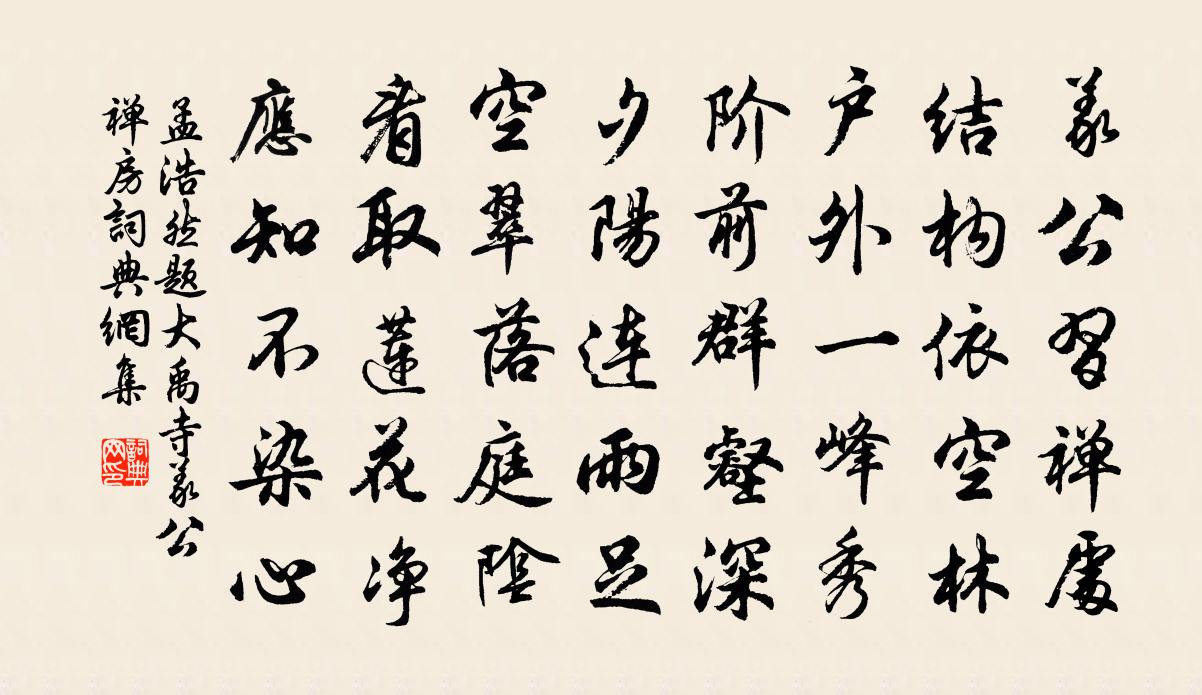 義公習禅處
结构依空林
户外一峰秀
阶前群壑深
夕陽連雨足
空翠落庭陰
看取蓮花净
應知不染心
孟浩然题大禹寺義公
禅房詞典網集
詞典
网印